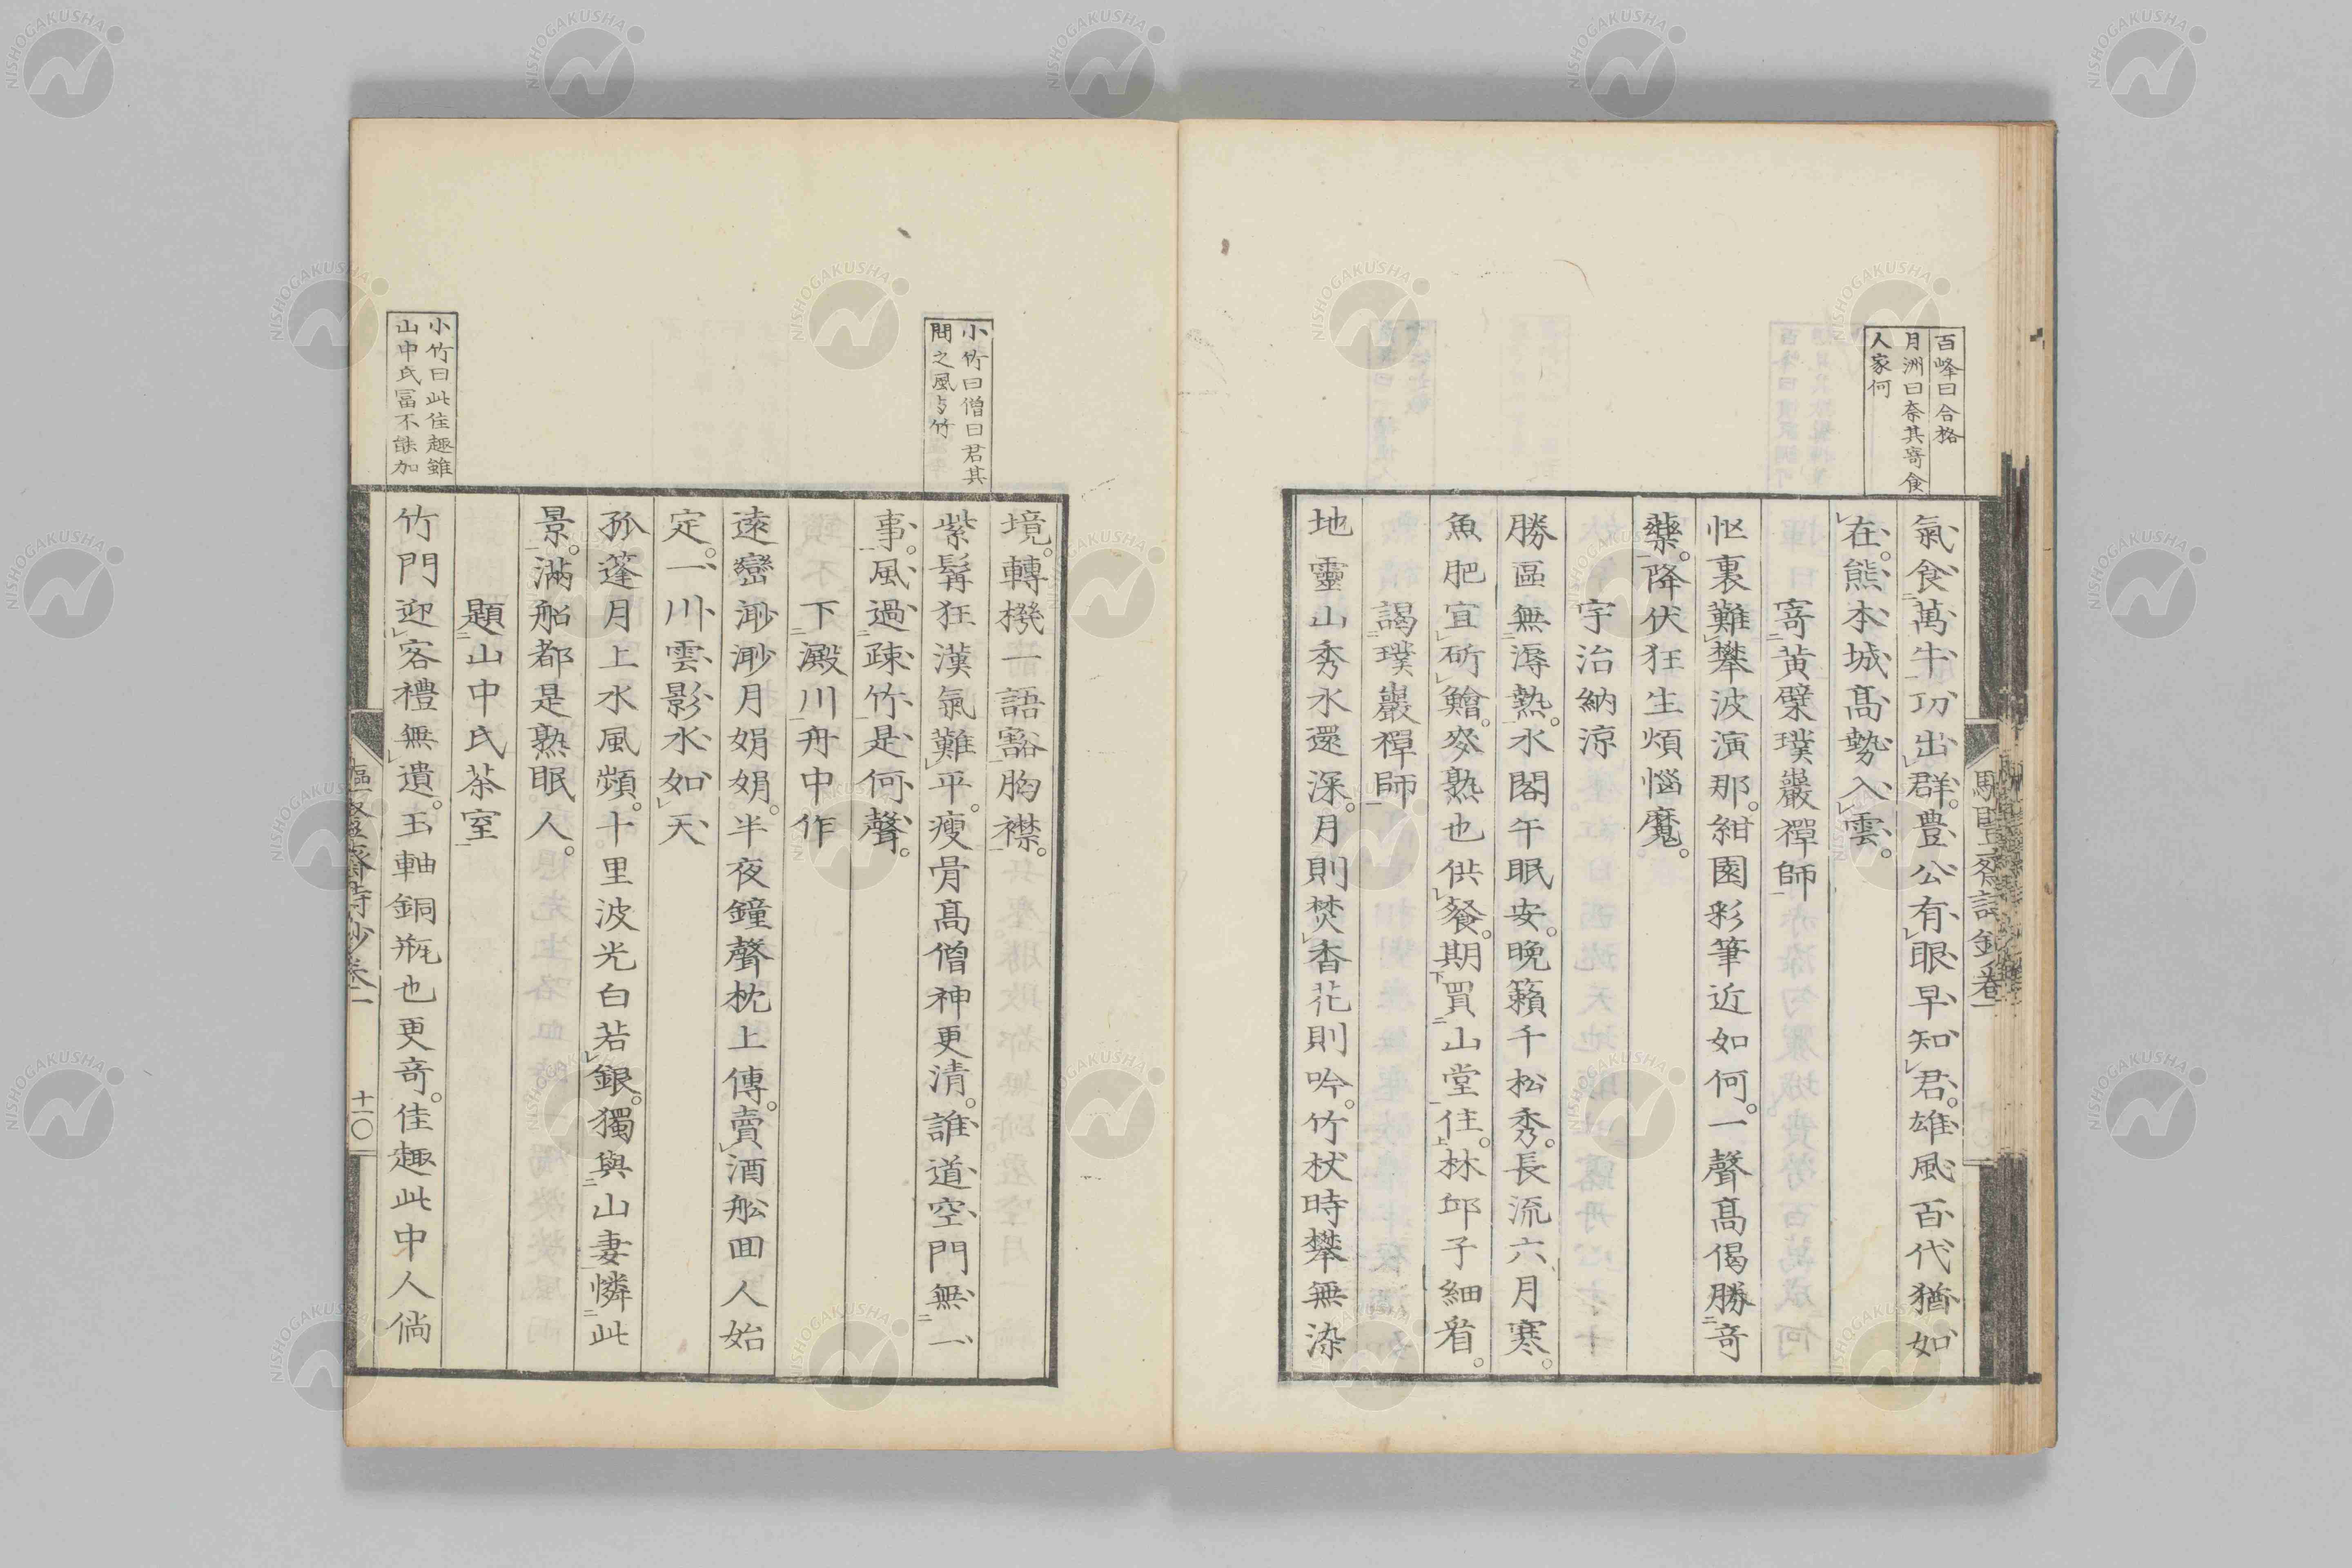 百峰曰合格
月洲曰奈其寄食
人家何
氣食萬牛功出群豊公有眼早知君雄風百代猶如
在熊本城高勢入雲
寄黄檗璞巖禪師
怄裏難攀波演那紺園彩筆近如何一聲高偈勝竒
藥降伏狂生煩惱魔
宇治納涼
勝區無溽熱水閣午眠安晩籟千松秀長流六月寒
魚肥宜斫鱠麥熟也供餐期買山堂住林邱子細看
謁璞巖禪師
地靈山秀水還深月則焚香花則吟竹杖時攀無染
小竹曰僧曰君其
問之風与竹
小竹曰此佳趣雖
山中氏冨不能加
境轉機一語豁胸襟
紫髯狂漢氣難平瘦骨髙僧神更清誰道空門無一
事風過疎竹是何聲
下澱川舟中作
遠巒渺渺月娟娟半夜鐘聲枕上傳賣酒舩囬人始
定一川雲影水如天
孤篷月上水風頻十里波光白若銀獨與山妻憐此
景滿船都是熟眠人
題山中氏茶室
竹門迎客禮無遺玉軸銅瓶也更竒佳趣此中人倘
齋詩鈔卷一
十一〇
NISHOGAKUSHA